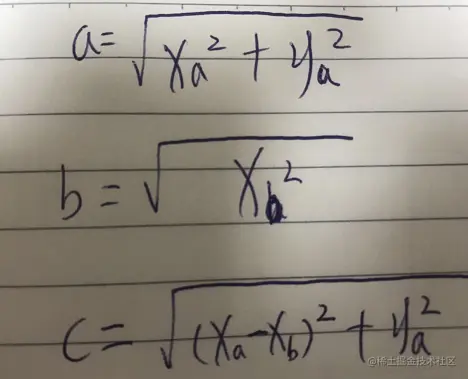 a=√(xₐ²+yₐ²)
b=√(x_b²)
c=√((xₐ-x_b)²+yₐ²)
@稀土掘金技术社区